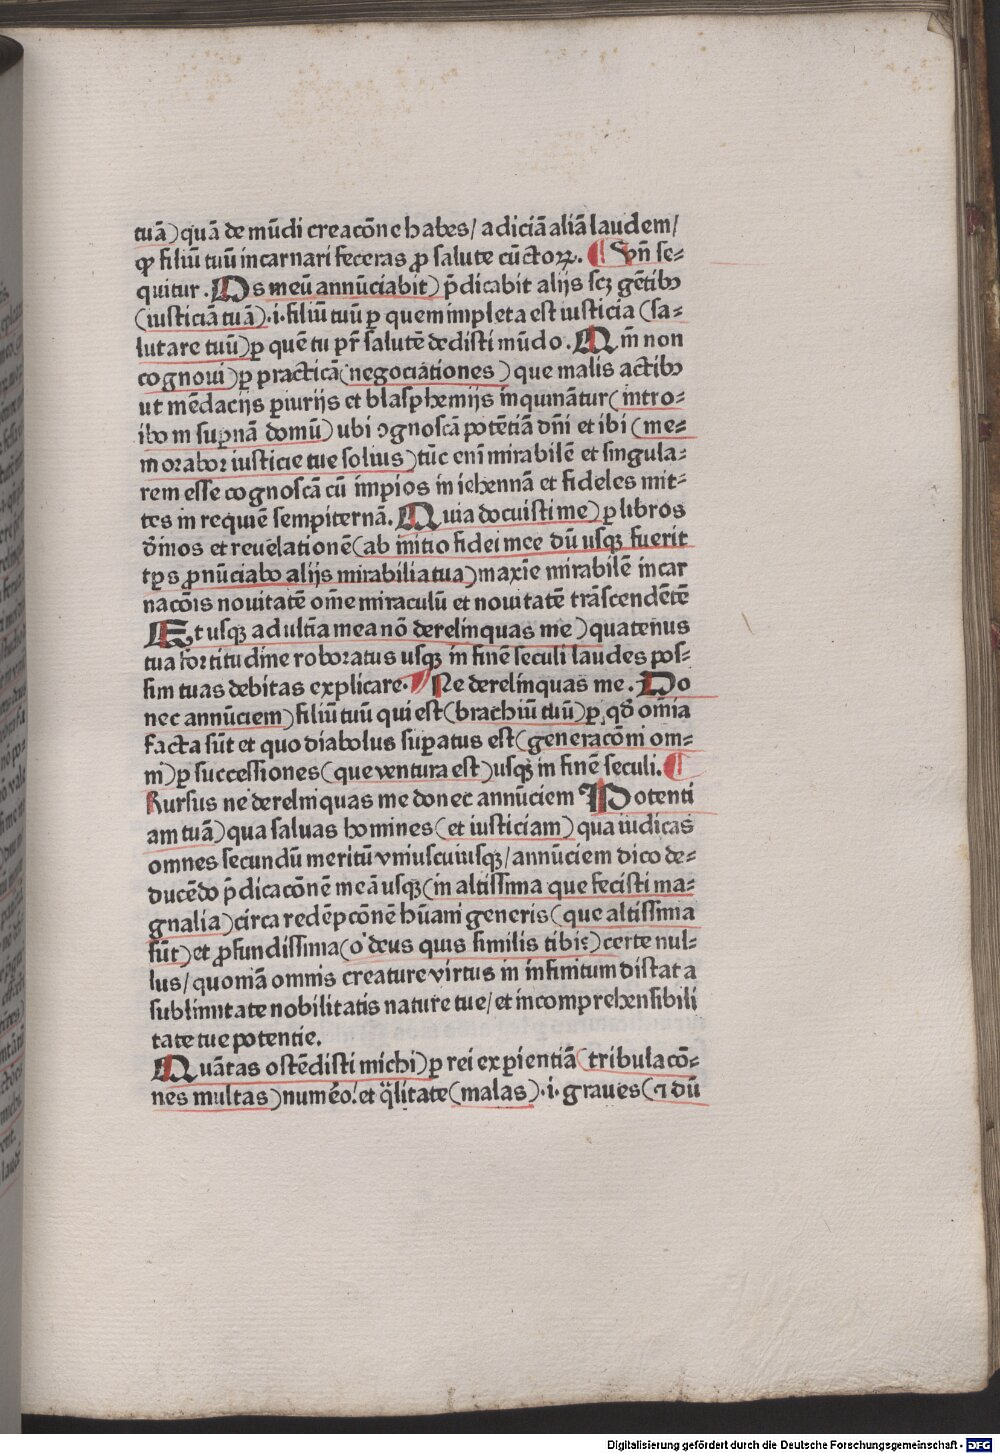 tuā) quā de mūdi creacōne habes/ adiciā aliā laudem/
ꝙ filiū tuū incarnari feceras ꝓ salute cūctoꝝ. ¶ Vn̄ se⸗
quitur. Os meū annūciabit) p̄dicabit alijs scꝫ gētibꝰ
(iusticiā tuā).i. filiū tuū ꝑ quem impleta est iusticia (sa⸗
lutare tuū) ꝑ quē tu pr̄ salutē dedisti mūdo. Qm̄ non
cognoui) ꝑ practicā (negociationes) que malis actibꝰ
ut mēdacijs ꝑiurijs et blasphemijs inqumātur (intro⸗
ibo in suꝑnā domū) ubi ꝯgnoscā potētiā dn̄i et ibi (me⸗
morabor iusticie tue solius) tūc enī mirabilē et singula⸗
rem esse cognoscā cū impios in iehennā et fideles mit⸗
tes in requiē sempiternā. Quia docuisti me) ꝑ libros
d̄inos et reuelationē (ab initio fidei mee dū usqꝫ fuerit
tꝑs ꝓnūciabo alijs mirabilia tua) maxīe mirabilē incar
nacōis nouitatē om̄e miraculū et nouitatē trāscendētē
Et usqꝫ ad ultīa mea nō derelinquas me) quatenus
tua fortitudine roboratus usqꝫ in finē seculi laudes pos⸗
sim tuas debitas explicare. ¶ Ne derelinquas me. Do
nec annūciem) filiū tuū qui est (brachiū tuū) ꝑ qd̄ om̄ia
facta sūt et quo diabolus suꝑatus est (generacōni om⸗
ni) ꝑ successiones (que ventura est) usqꝫ in finē seculi. ¶
Rursus ne derelinquas me donec annūciem Potenti
am tuā) qua saluas homines (et iusticiam) qua iudicas
omnes secundū meritū vniuscuiusqꝫ/ annūciem dico de⸗
ducēdo p̄dicacōnē meā usqꝫ (in altissima que fecisti ma⸗
gnalia) circa redēpcōnē hūani generis (que altissima
sūt) et ꝓfundissima (o deus quis similis tibi?) certe nul⸗
lus/ quoniā omnis creature virtus in infinitum distat a
sublimitate nobilitatis nature tue/ et incomprehensibili
tate tue potentie.
Quātas ostēdisti michi) ꝑ rei exꝑientiā (tribulacō⸗
nes multas) numēo! et q̄litate (malas).i. graues (⁊ dū
Digitalisierung gefördert durch die Deutsche Forschungsgemeinschaft - DFG